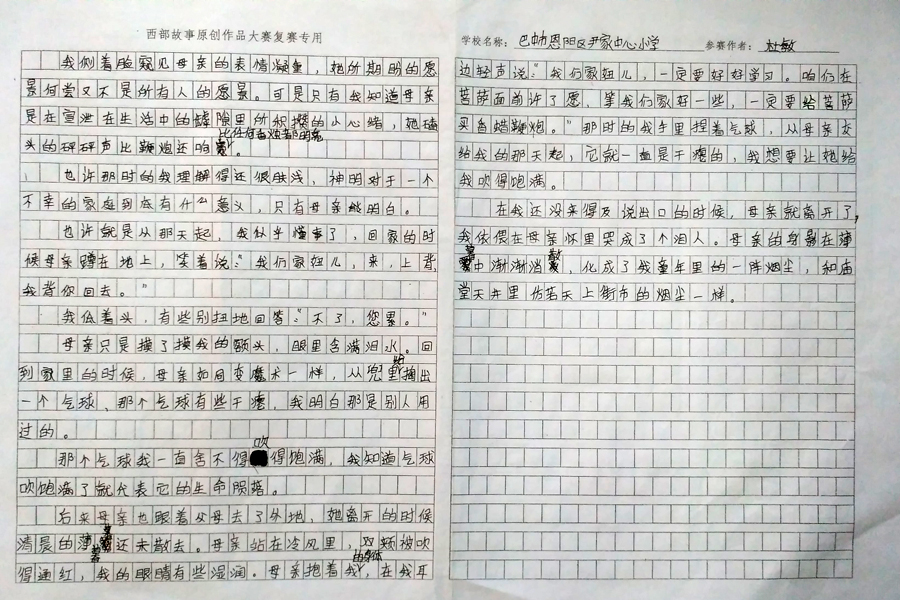 西部故事原创作品大赛复赛专用
我侧着脸窥见母亲的表情凝重，她所期盼的愿
景何尝又不是所有人的愿景。可是只有我知道母亲
是在宣泄在生活中的罅隙里所积攒的小心绪，她磕
头的砰砰声比鞭炮还响
也许那时的我理解得还很肤浅，神明对于一个
不幸的家庭到底有什么意义，只有母亲能明白。
也许就是从那天起，我似乎懂事了，回家的时
候母亲蹲在地上，笑着说：“我们家妞儿，来，上背，
我背你回去。”
我低着头，有些别扭地回答：“不了，您累。”
母亲只是摸了摸我的额头，眼里含满泪水。回
到家里的时候，母亲如同变魔术一样，从兜里掏出
一个气球、那个气球有些干瘪，我明白那是别人用
过的。
那个气球我一直舍不得吹得饱满，我知道气球
吹饱满了就代表它的生命陨落。
后来母亲也跟着父母去了外地，她离开的时候
清晨的薄雾还未散去。母亲站在冷风里，双颊被吹
得通红，我的眼睛有些湿润。母亲抱着我的身体，在我耳
学校名称：巴中恩阳区尹家中心小学
参赛作者：杜敏
边轻声说：“我们家妞儿，一定要好好学习。咱们在
菩萨面前许了愿、等我们家好一些，一定要给菩萨
买香蜡鞭炮。”那时的我手里捏着气球，从母亲交
给我的那天起，它就一直是干瘪的，我想要让她给
我吹得饱满。
在我还没来得及说出口的时候，母亲就离开了，
我依偎在母亲怀里哭成了个泪人。母亲的身影在薄
雾中渐渐消散，化成了我童年里的一阵烟尘，和庙
堂天井里仿若天上街市的烟尘一样。